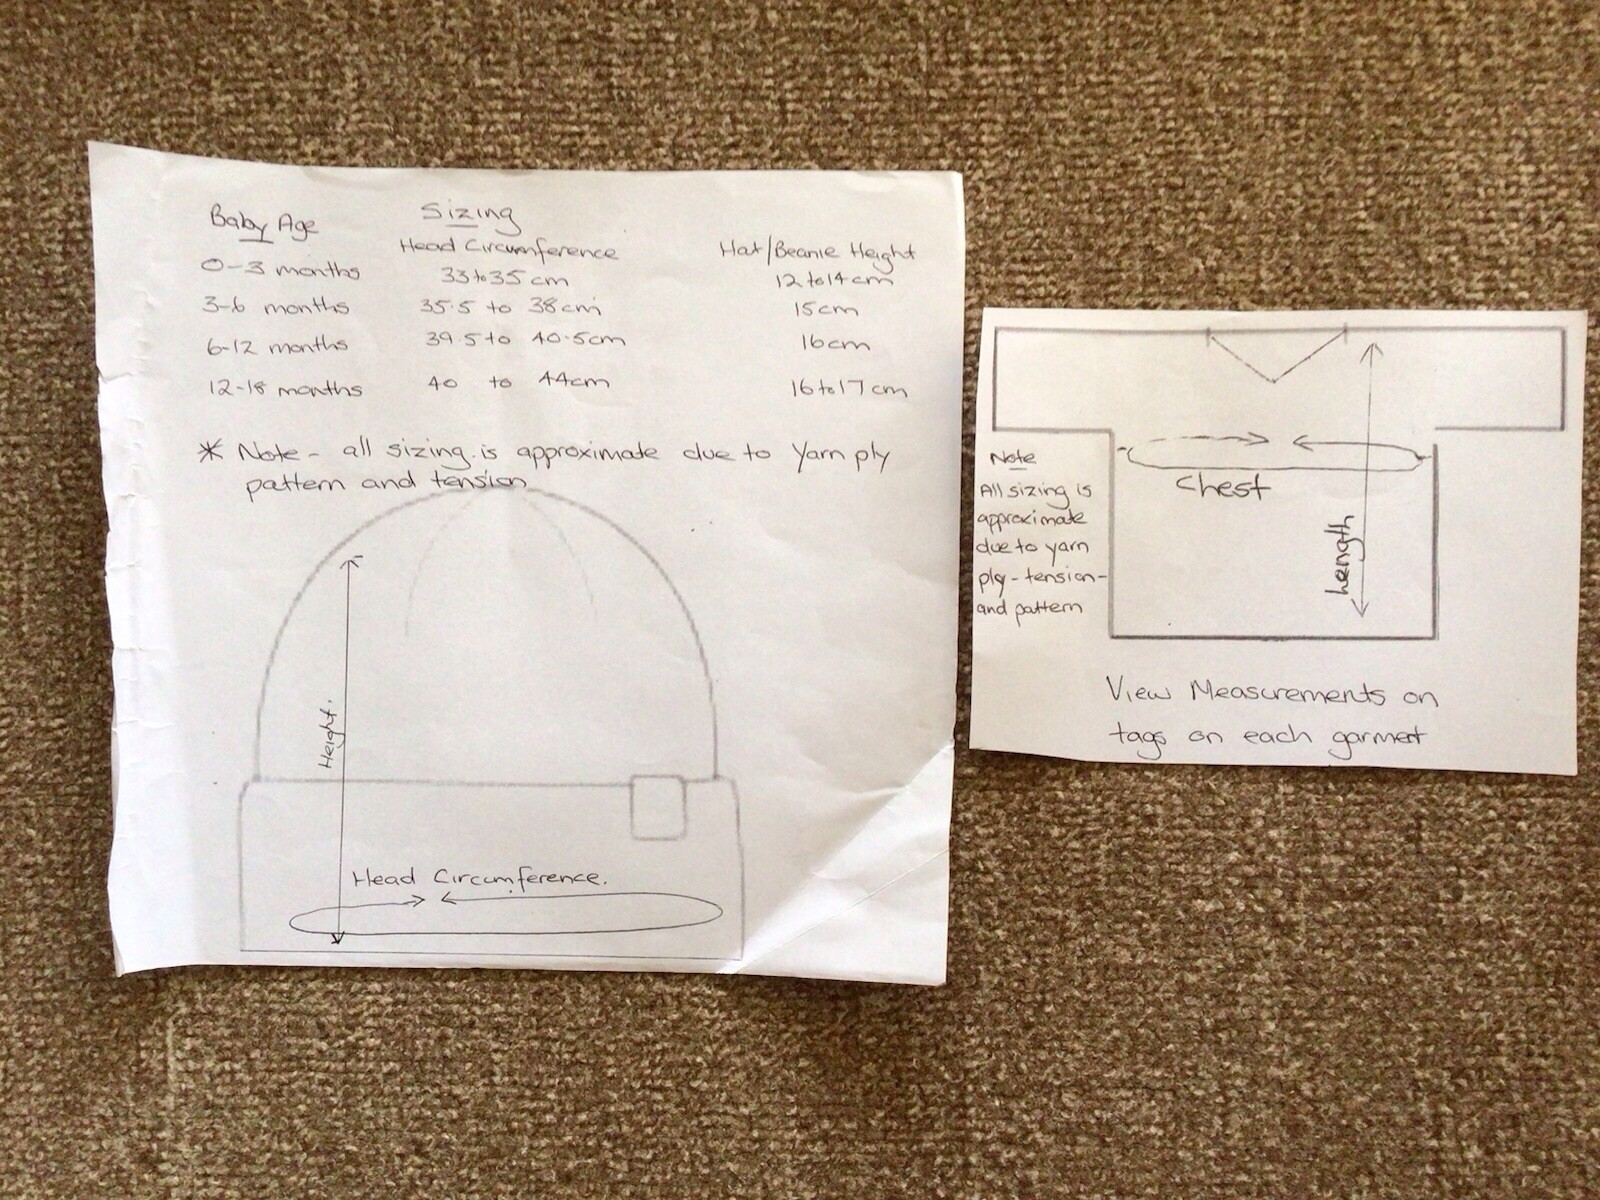 Baby Age Sizing
Head Circumference Hat/Beanie Height
0-3 months 33 to 35 cm 12 to 14 cm
3-6 months 35.5 to 38 cm 15 cm
6-12 months 39.5 to 40.5 cm 16 cm
12-18 months 40 to 44 cm 16 to 17 cm
* Note - all sizing is approximate due to Yarn ply
pattern and tension
Height.
Head Circumference.
Note
All sizing is
approximate
due to yarn
ply - tension -
and pattern
Chest
Length
View Measurements on
tags on each garment